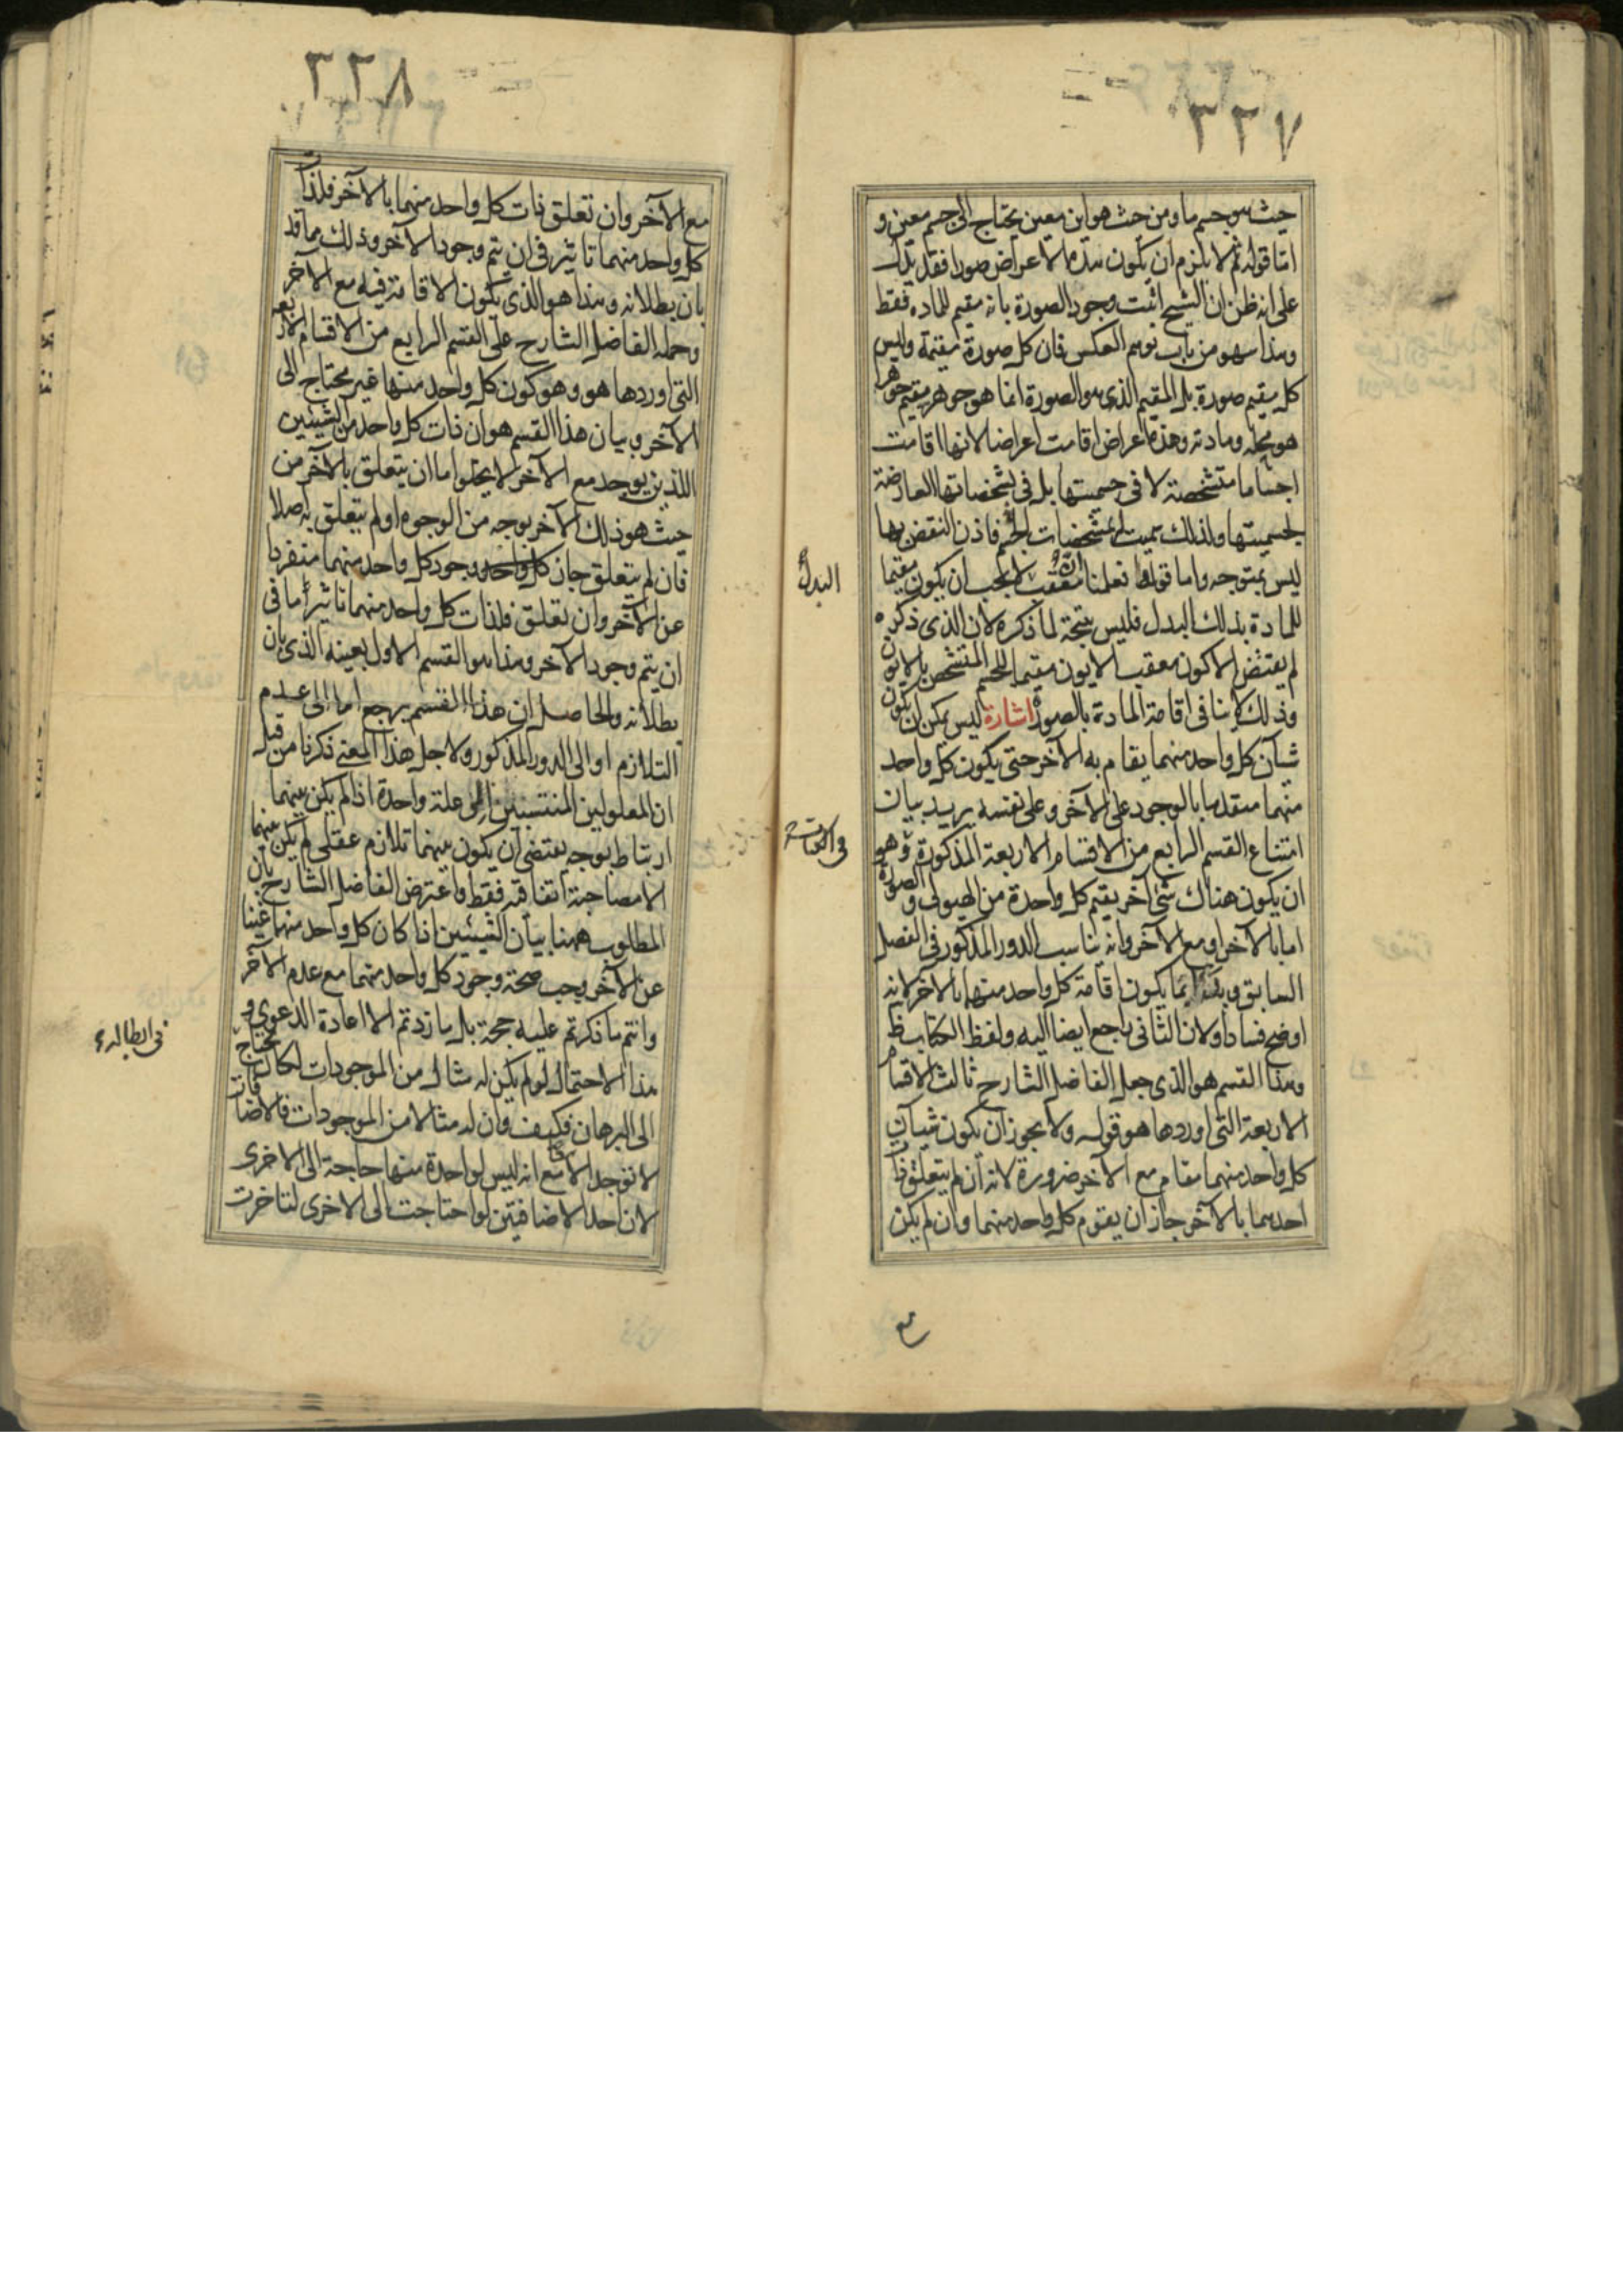 ٣٣٧
حيث هو جسم ما ومن حيث هو اين معين يحتاج الى جسم معين و
اما قوله ثم لا يلزم ان يكون هذه الاعراض صورا فقد يدل
على انه ظن ان الشيخ اثبت وجود الصورة بانه مقيم للماده فقط
وهذا سهو من باب توهم العكس فان كل صورة مقيمة وليس
كل مقيم صورة بل المقيم الذى هو الصورة انما هو جوهر مقيم جوهرا
هو محله ومادته وهذه اعراض اقامت اعراضا لانها اقامت
اجساما متشخصة لا فى جسميتها بل فى تشخصاتها العارضة
لجسميتها ولذلك سميت مشخصات الجسم فاذن النقض بها
ليس بمتوجه واما قوله فعلمنا ان معقب البدل لا يجب ان يكون مقيما
للمادة بذلك البدل فليس نتيجة لما ذكره لان الذى ذكره
لم يقتض الا كون معقب الايون مقيما للجسم المتشخص بالايون
وذلك لا ينافى اقامة المادة بالصورة اشارة ليس يمكن ان يكون
شيآن كل واحد منهما يقام به الآخر حتى يكون كل واحد
منهما متقدما بالوجود على الآخر وعلى نفسه يريد بيان
امتناع القسم الرابع من الاقسام الاربعة المذكورة وهو
ان يكون هناك شئ آخر يقيم كل واحدة من الهيولى والصورة
اما بالآخر او مع الآخر وانه يناسب الدور المذكور فى الفصل
السابق و بما يكون اقامة كل واحد منهما بالآخر لانه
اوضح فسادا ولان الثانى راجع ايضا اليه ولفظ الكتاب ظ
وهذا القسم هو الذى جعل الفاضل الشارح ثالث الاقسام
الاربعة التى اوردها هو قوله ولا يجوز ان يكون شيآن
كل واحد منهما مقام مع الآخر ضرورة لانه ان لم يتعلق ذات
احدهما بالآخر جاز ان يقوم كل واحد منهما وان لم يكن
البدل
٣٣٨
مع الآخر وان تعلق ذات كل واحد منهما بالآخر فلذات
كل واحد منهما تاثير فى ان يتم وجود الآخر وذلك مما قد
بان بطلانه وهذا هو الذى يكون الاقامة فيه مع الآخر
وحمله الفاضل الشارح على القسم الرابع من الاقسام الاربعة
التى اوردها هو وهو كون كل واحد منها غير محتاج الى
الآخر وبيان هذا القسم هو ان ذات كل واحد من الشيئين
اللذين يوجد مع الآخر لا يخلو اما ان يتعلق بالآخر من
حيث هو ذلك الآخر بوجه من الوجوه او لم يتعلق به اصلا
فان لم يتعلق جاز كل واحد وجود كل واحد منهما منفردا
عن الآخر وان تعلق فلذات كل واحد منهما تاثير ما فى
ان يتم وجود الآخر وهذا هو القسم الاول بعينه الذى بان
بطلانه والحاصل ان هذا القسم يرجع اما الى عدم
التلازم او الى الدور المذكور ولاجل هذا المعنى ذكرنا من قبل
ان المعلولين المنتسبين الى علة واحدة اذا لم يكن بينهما
ارتباط بوجه يقتضى ان يكون بينهما تلازم عقلى لم يكن بينهما
الا مصاحبة اتفاقية فقط واعترض الفاضل الشارح بان
المطلوب ههنا بيان الشيئين اذا كان كل واحد منهما غنيا
عن الآخر وجب صحة وجود كل واحد منهما مع عدم الآخر
وانتم ما ذكرتم عليه حجة بل ما زدتم الا اعادة الدعوى و
هذا الاحتمال لو لم يكن له مثال من الموجودات لكان يحتاج
الى البرهان فكيف وان له مثالا من الموجودات فالاضافات
لا توجد الا معا مع انه ليس لواحدة منها حاجة الى الاخرى
لان احد الاضافيتين لو احتاجت الى الاخرى لتاخرت